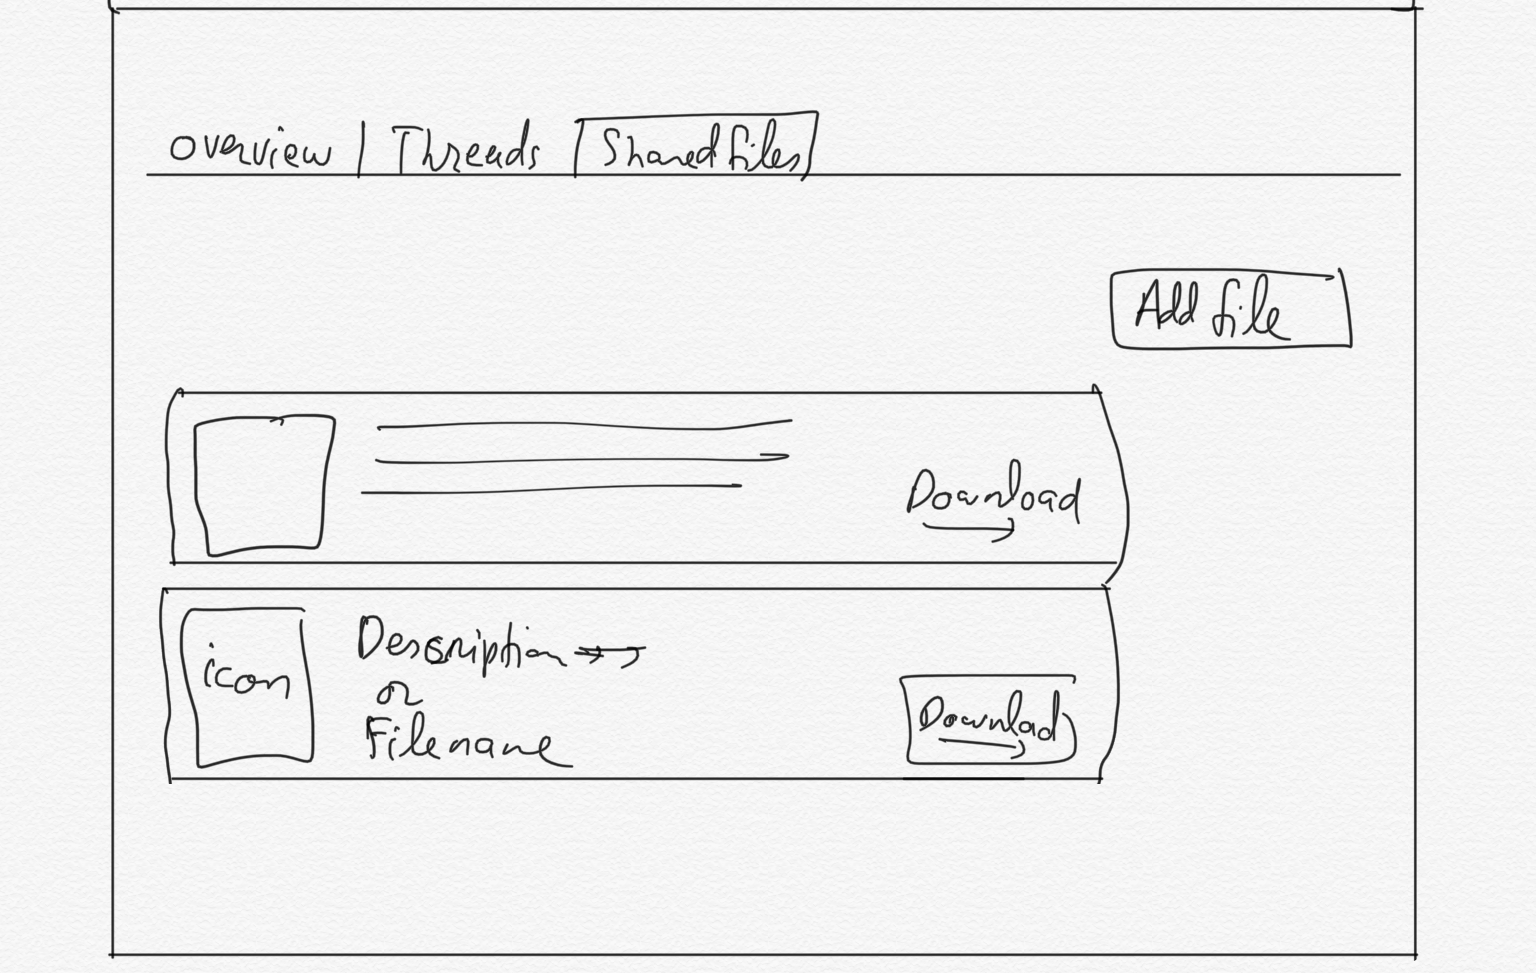 overview | Threads | Shared files
Add file
Download
icon
Description
or
Filename
Download